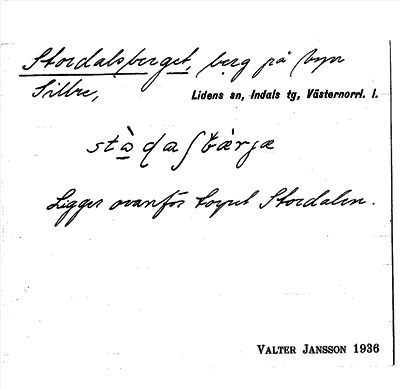 Stordalsberget, berg på byn
Sillre, Lidens sn, Indals tg, Västernorrl. l.
Ligger ovanför torpet Stordalen.
VALTER JANSSON 1936